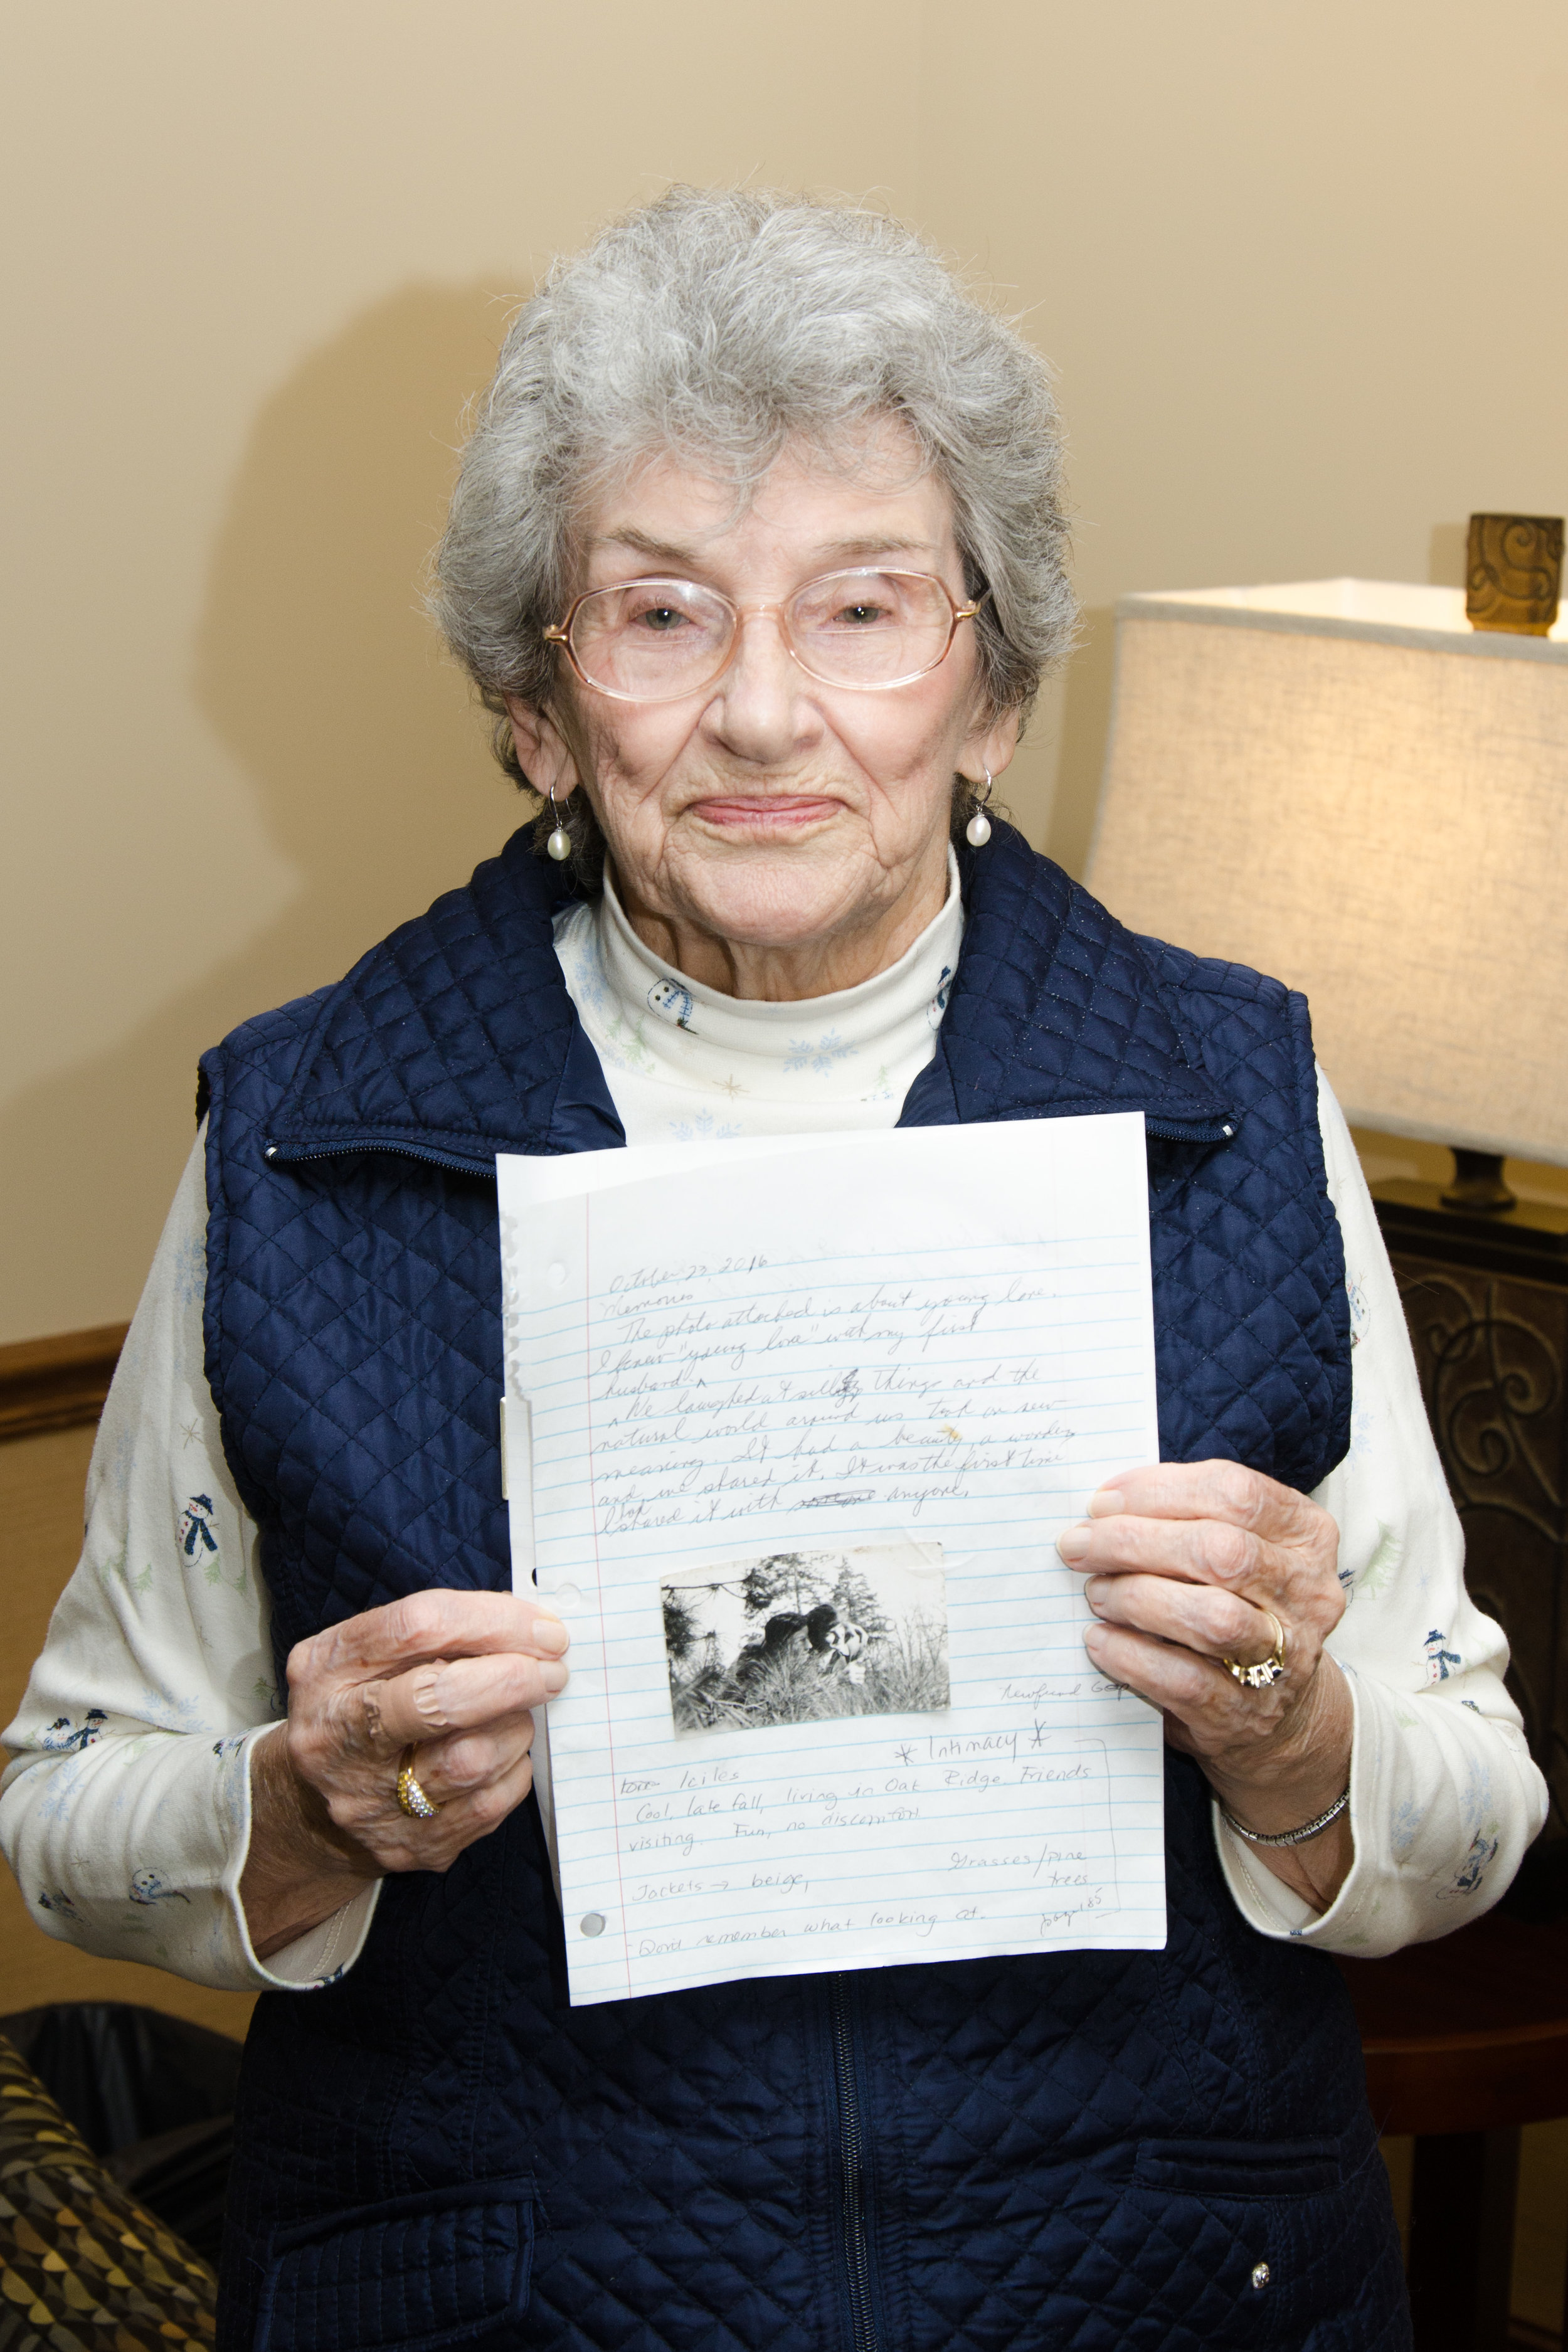 October 23, 2016
Memories
The photo attached is about young love.
I knew "young love" with my first
husband.
We laughed at silly things and the
natural world around us took on new
meaning. It had a beauty, a wonder,
and we shared it. It was the first time
I had shared it with anyone.
Newfound Gap
* Intimacy *
Icicles
Cool, late fall, living in Oak Ridge. Friends
visiting. Fun, no discomfort
Grasses/pine
trees
Jackets → beige,
page 85
Don't remember what looking at.